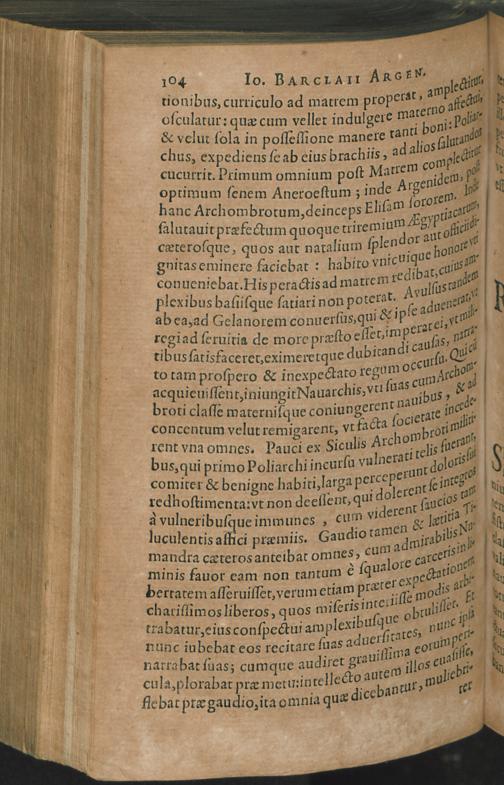 104 Io. BARCLAII ARGEN.
tionibus, curriculo ad matrem properat, amplectitur,
osculatur: quæ cum vellet indulgere materno affectui,
& velut sola in possessione manere tanti boni: Poliar-
chus, expediens se ab eius brachiis, ad alios salutandos
cucurrit. Primum omnium post Matrem complectitur
optimum senem Aneroestum; inde Argenidem, post
hanc Archombrotum, deinceps Elisam sororem. Inde
salutauit præfectum quoque triremium Ægyptiacarum,
cæterosque, quos aut natalium splendor aut officii di-
gnitas eminere faciebat: habito vnicuique honore vti
conueniebat. His peractis ad matrem redibat, cuius am-
plexibus basiisque satiari non poterat. Avulsus tandem
ab ea, ad Gelanorem conuersus, qui & ipse aduenerat, vt
regi ad seruitia de more præsto esset, imperat ei, vt mili-
tibus satisfaceret, eximeretque dubitandi causas, narra-
to tam prospero & inexpectato regum occursu. Qui cù
acquieuissent, iniungit Nauarchis, vti suas cum Archom-
broti classe maternisque coniungerent nauibus, & ad
concentum velut remigarent, vt facta societate incede-
rent vna omnes. Pauci ex Siculis Archombroti militi-
bus, qui primo Poliarchi incursu vulnerati telis fuerant,
comiter & benigne habiti, larga perceperunt doloris sui
redhostimenta: vt non deessent, qui dolerent se integros
à vulneribusque immunes, cum viderent saucios tam
luculentis affici præmiis. Gaudio tamen & lætitia Ti-
mandra cæteros anteibat omnes, cum admirabilis Nu-
minis fauor eam non tantum è squalore carceris in li-
bertatem asseruisset, verum etiam præter expectationem
charissimos liberos, quos miseris interiisse modis arbi-
trabatur, eius conspectui amplexibusque obtulisset. Et
nunc iubebat eos recitare suas aduersitates, nunc ipsa
narrabat suas; cumque audiret grauissima eorum peri-
cula, plorabat præ metu: intellecto autem illos euasisse,
flebat præ gaudio, ita omnia quæ dicebantur, muliebri-
ter